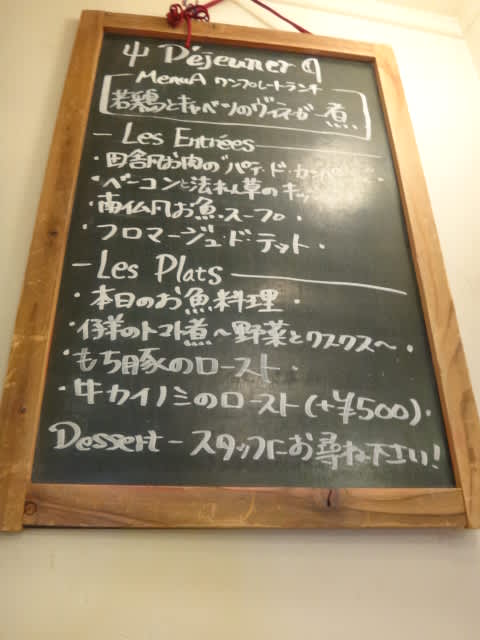 Déjeuner
MenuA ワンプレートランチ
若鶏とキャベツのヴィネガー煮
Les Entrées
・田舎風お肉の"パテ・ド・カンパ
・ベーコンと法れん草のキッ
・南仏風お魚・スープ・
・フロマージュ・ド・テット・
Les Plats
・本日のお魚料理・
・仔羊のトマト煮〜野菜とクスクス〜・
・もち豚のロースト・
・牛カイノミのロースト(+¥500)・
Dessert-スタッフにお尋ね下さい!